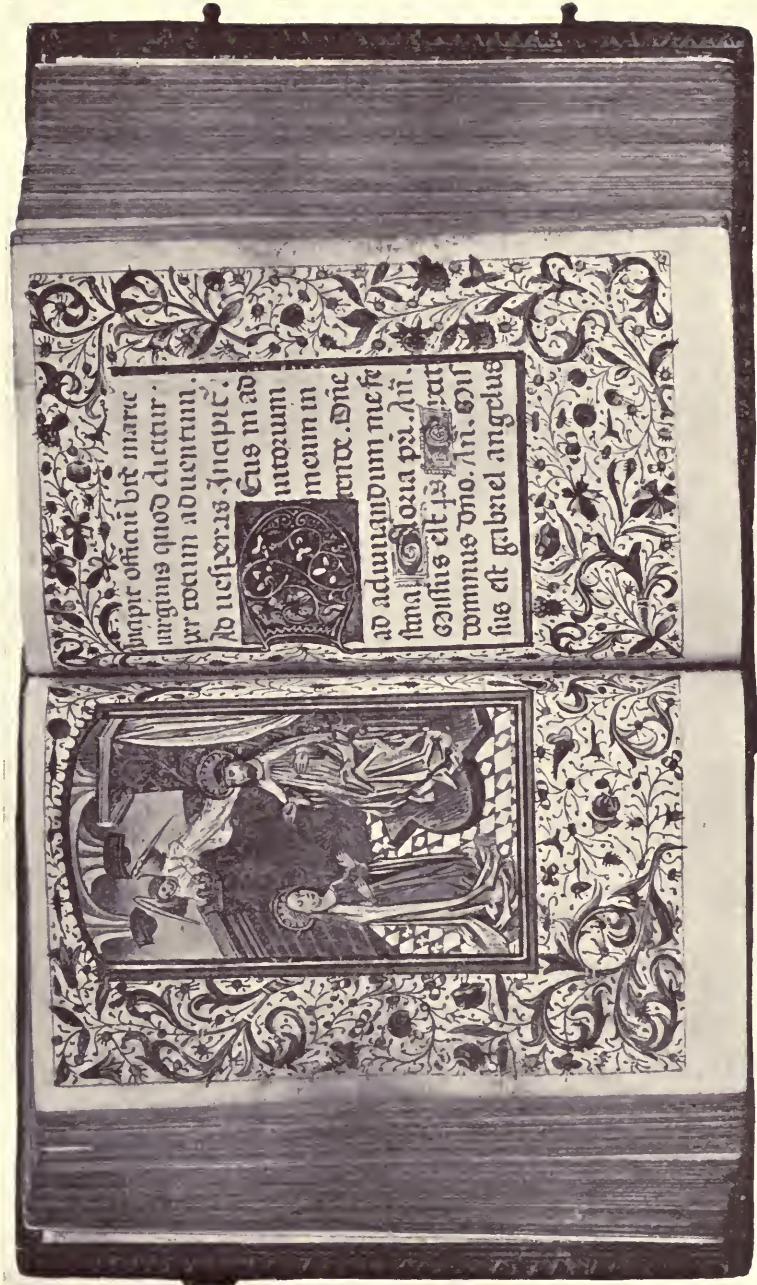 Incipit officiū btē marie
uirginis quod dicitur ·
per totum aduentum .
Ad uesperas Incipit̄ :
Deus in ad
iutorium
meum in
tende . Dn̄e
ad adiuuandum me fe
stina Gloria pri . An̄ .
Missus est . ps
dominus dn̄o . An̄ . Mis
sus est gabriel angelus